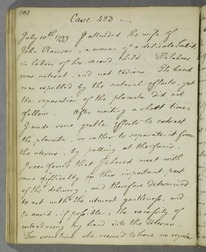 101
Case 523.
July 10th, 1799 I attended the wife of
John , a woman of a delicate habit,
in labor of her second child. The labour
was natural, and not tedious. The head
was expelled by the natural efforts, yet
the separation of the placenta did not
follow. After waiting a short time,
I made some gentle efforts to extract
the placenta, or rather to separate it from
the uterus, by pulling at the funis.
I soon found that I should meet with
some difficulty in this important part
of the delivery, and therefore determined
to act with the utmost gentleness, and
to avoid, if possible, the necessity of
introducing my hand into the uterus.
For some time she seemed to have no